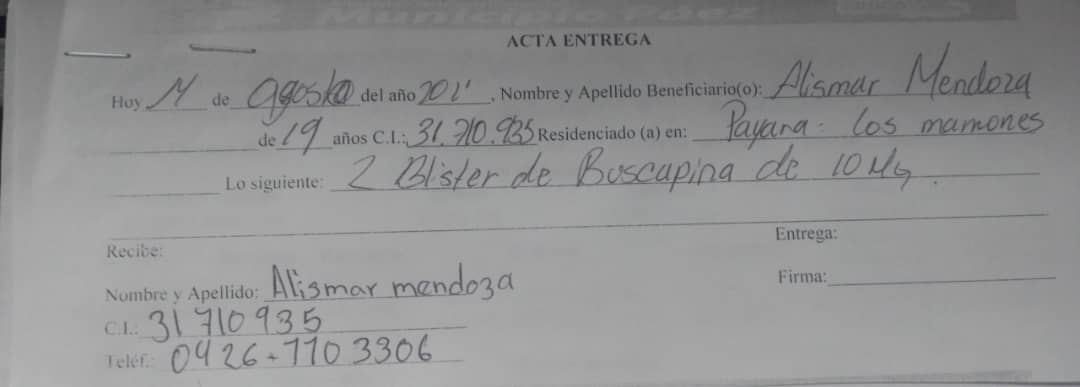 Municipio Páez
ACTA ENTREGA
Hoy 11 de Agosto del año 202', Nombre y Apellido Beneficiario(o): Alismar Mendoza
de 19 años C.I.: 31.710.935 Residenciado (a) en: Payara. los mamones
Lo siguiente: 2 Blister de Buscapina de 10 Mg.
Recibe: Entrega:
Nombre y Apellido: Alismar mendoza Firma:
C.I.: 31 710 935
Teléf.: 0426-770 3306